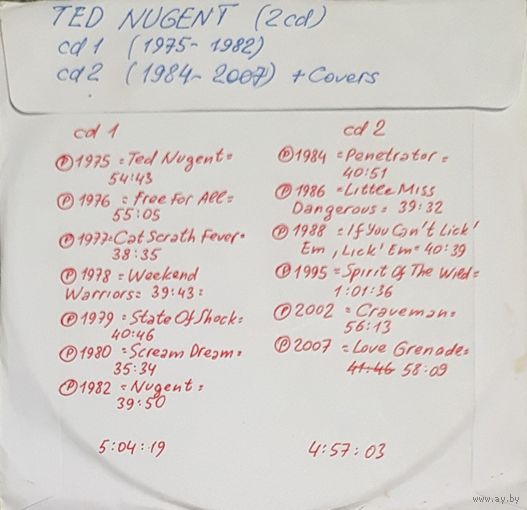 TED NUGENT (2cd)
cd 1 (1975-1982)
cd 2 (1984-2007) + Covers
cd 1
Ⓟ1975 = Ted Nugent =
54:43
Ⓟ1976 = Free For All =
55:05
Ⓟ1977=Cat Scrath Fever=
38:35
Ⓟ1978 = Weekend
Warriors= 39:43=
Ⓟ1979 = State Of Shock=
40:46
Ⓟ1980 = Scream Dream=
35:34
Ⓟ1982 = Nugent =
39:50
5:04:19
cd 2
Ⓟ1984 = Penetrator =
40:51
Ⓟ1986 = Little Miss
Dangerous = 39:32
Ⓟ1988 = If You Can't Lick'
Em, Lick' Em = 40:39
Ⓟ1995 = Spirit Of The Wild=
1:01:36
Ⓟ2002 = Craveman=
56:13
Ⓟ2007 = Love Grenade=
41:46 58:09
4:57:03
www.ay.by